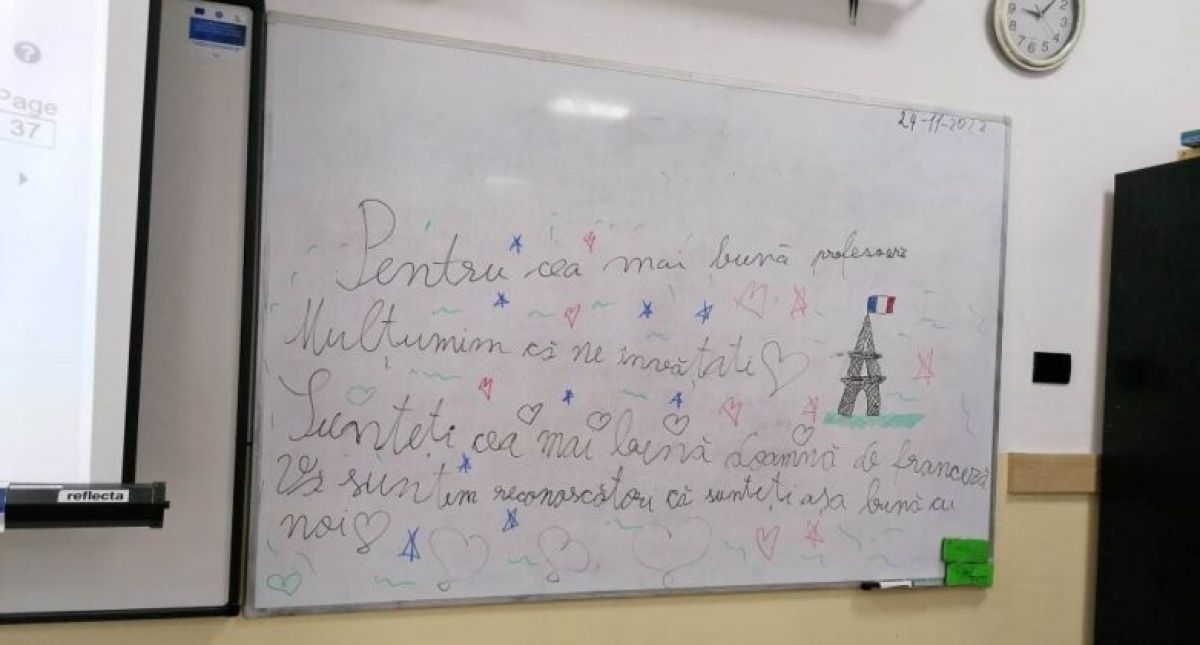 Page
37
24-11-2022
Pentru cea mai bună profesoară
Mulțumim că ne învățați
Sunteți cea mai bună doamnă de franceză
Vă suntem reconoscători că sunteți așa bună cu
noi
reflecta
9 1 2 3 4 5 6 7 8